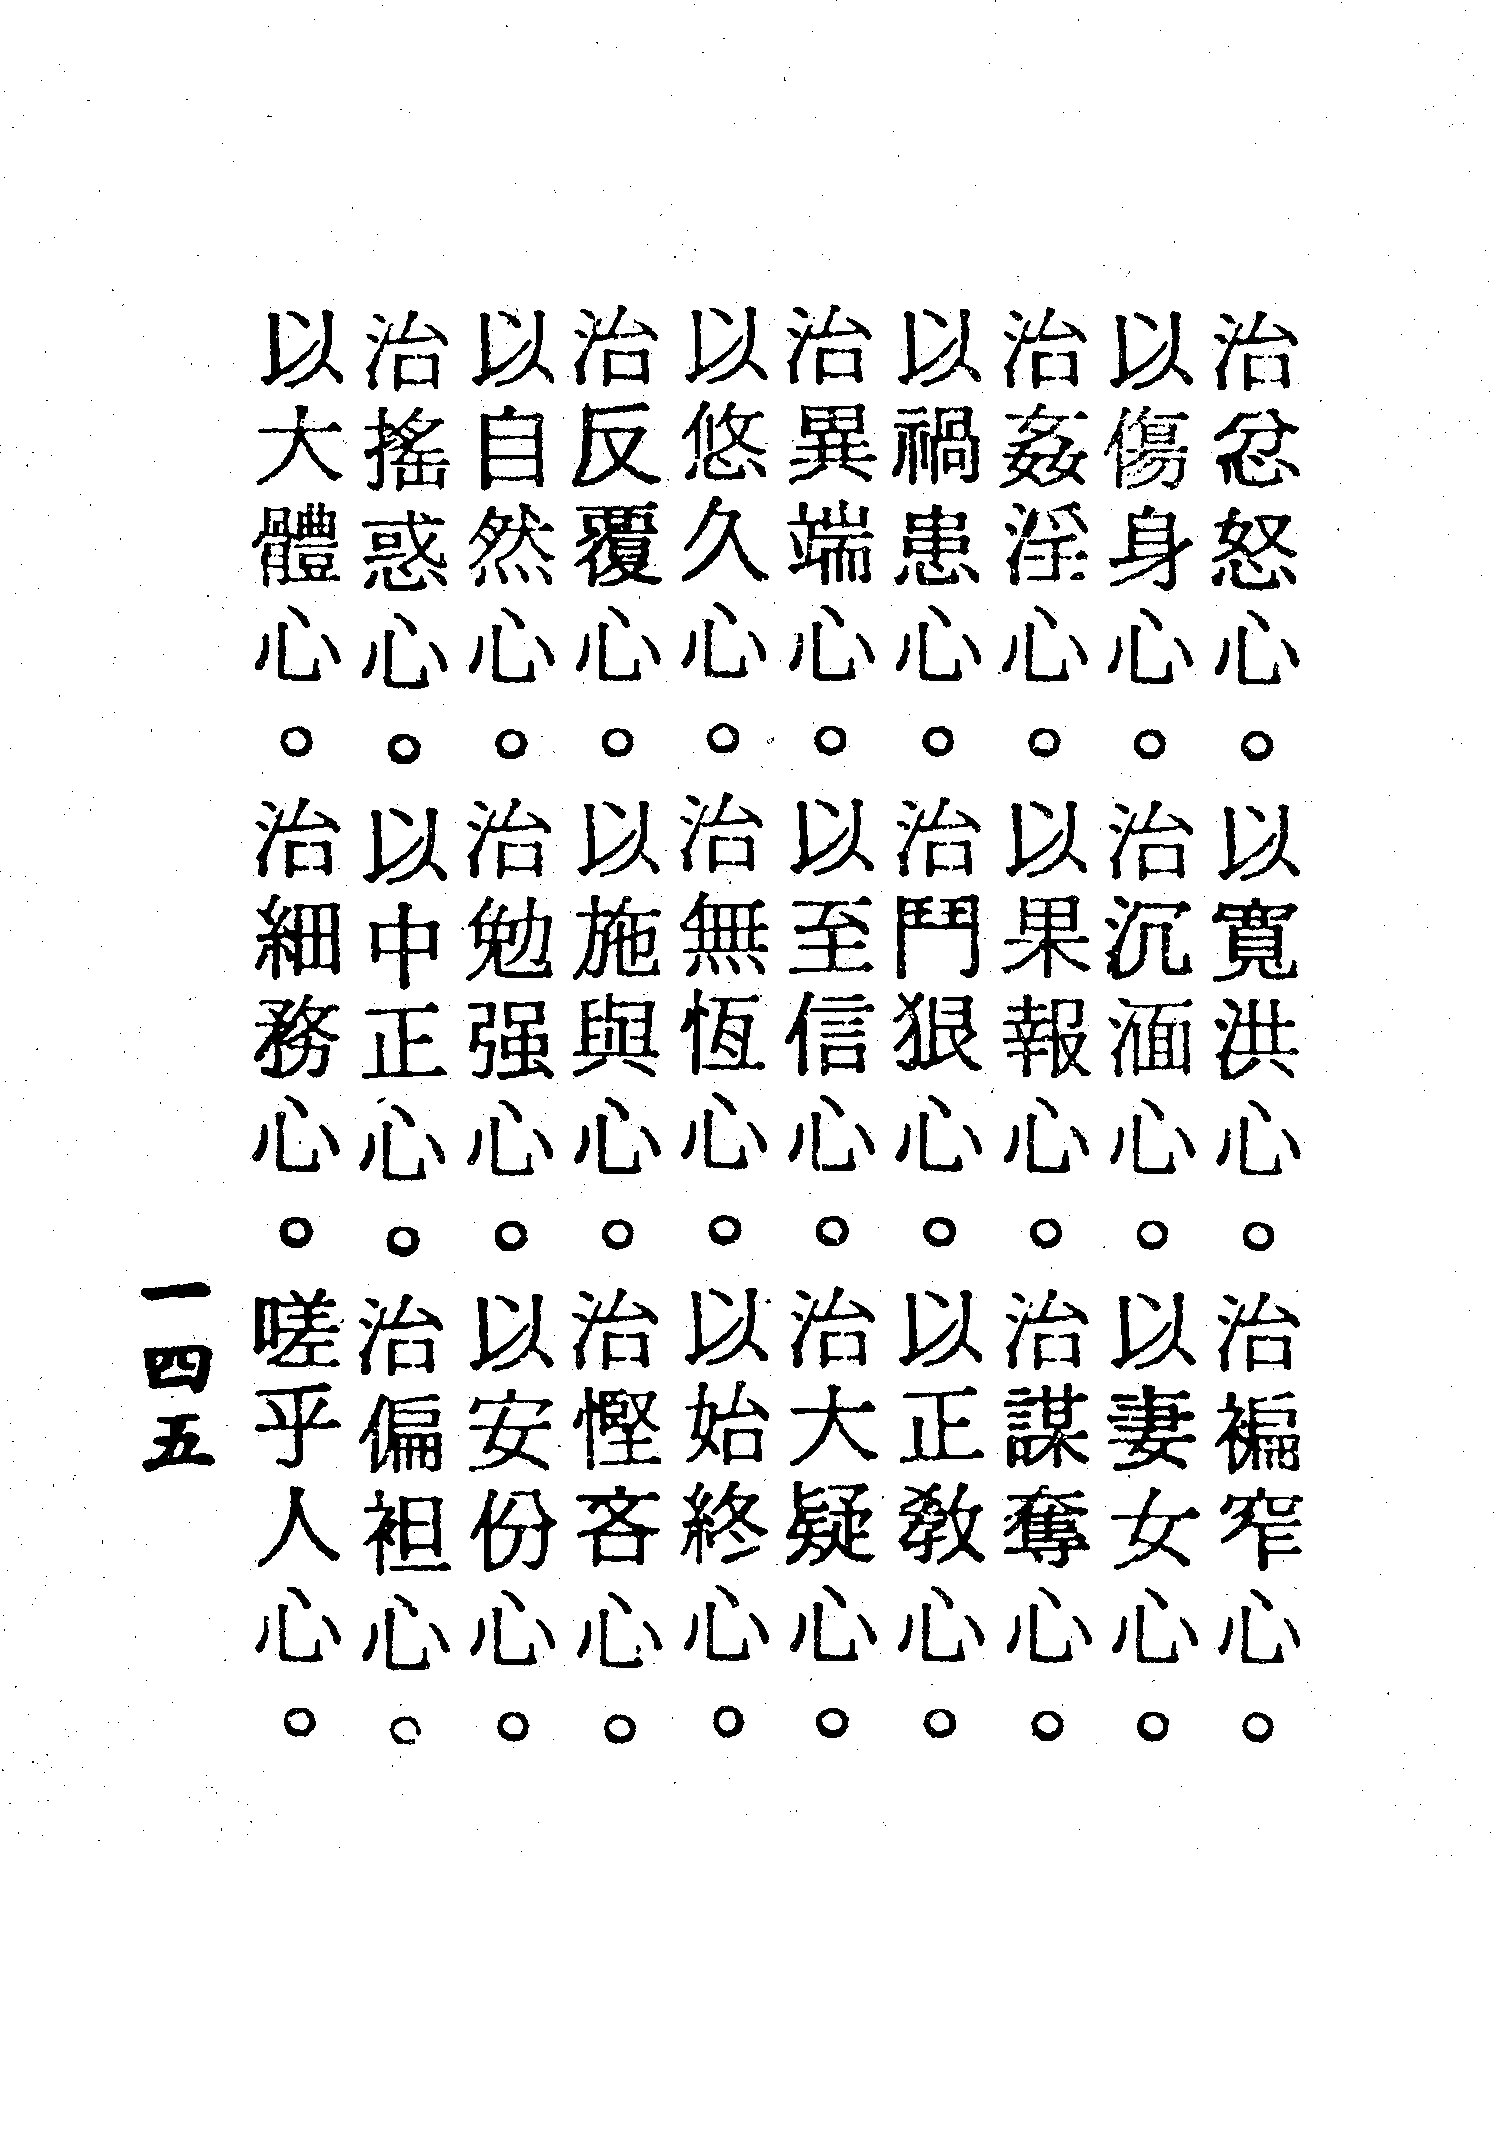 治忿怒心。以寬洪心。治褊窄心。
以傷身心。治沉湎心。以妻女心。
治姦淫心。以果報心。治謀奪心。
以禍患心。治鬥狠心。以正教心。
治異端心。以至信心。治大疑心。
以悠久心。治無恆心。以始終心。
治反覆心。以施與心。治慳吝心。
以自然心。治勉强心。以安份心。
治搖惑心。以中正心。治偏袒心。
以大體心。治細務心。嗟乎人心。
一四五